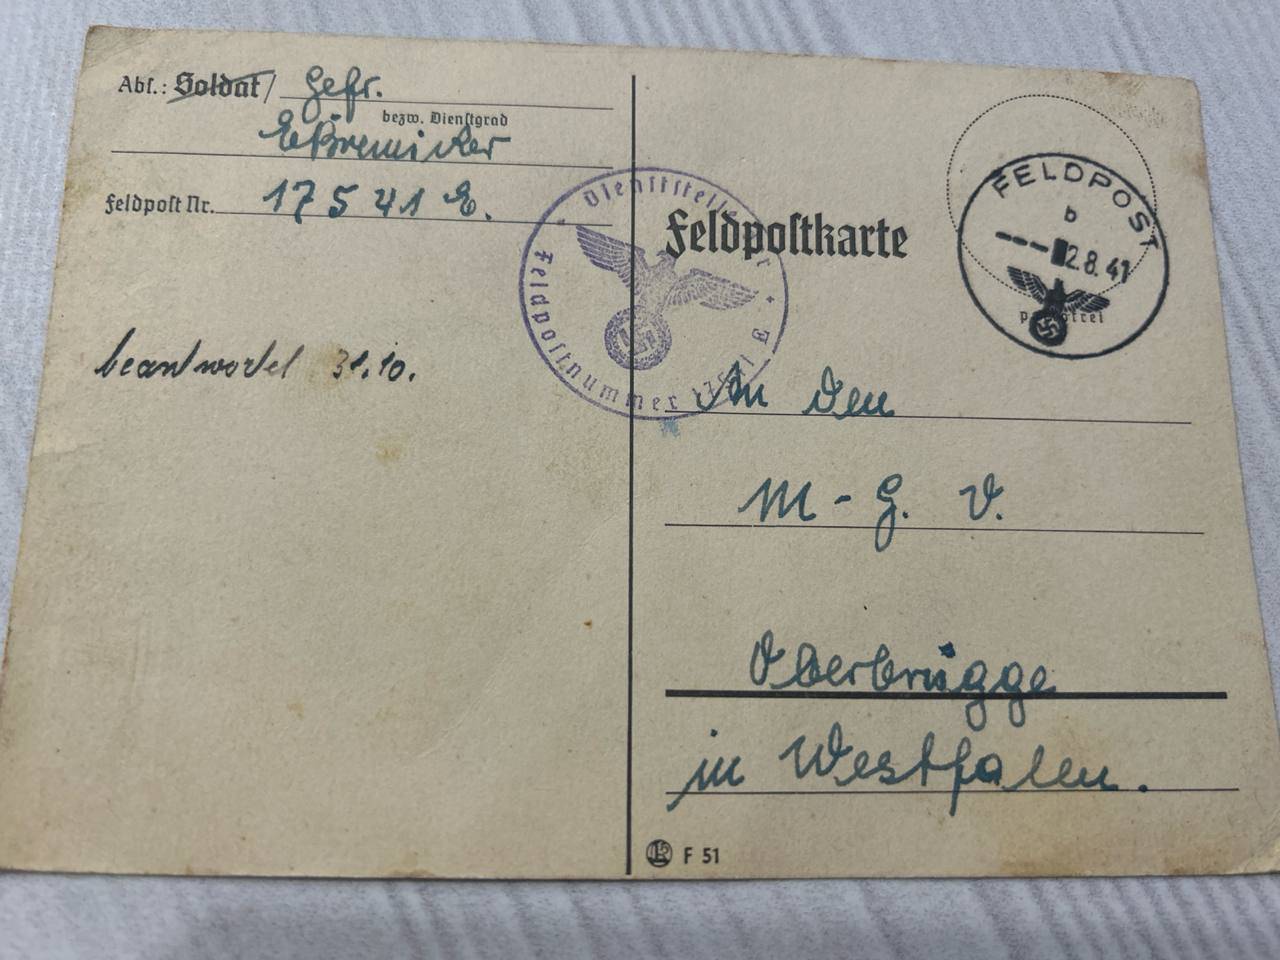 Abs.: Soldat/ Gefr.
bezw. Dienstgrad
E Bremicker
Feldpost Nr. 17541 E.
beantwortet 31.10.
Dienststelle
Feldpostnummer 17541 E
Feldpostkarte
FELDPOST
b
2.8.41
An den
M-G. V.
Oberbrügge
in Westfalen.
F 51